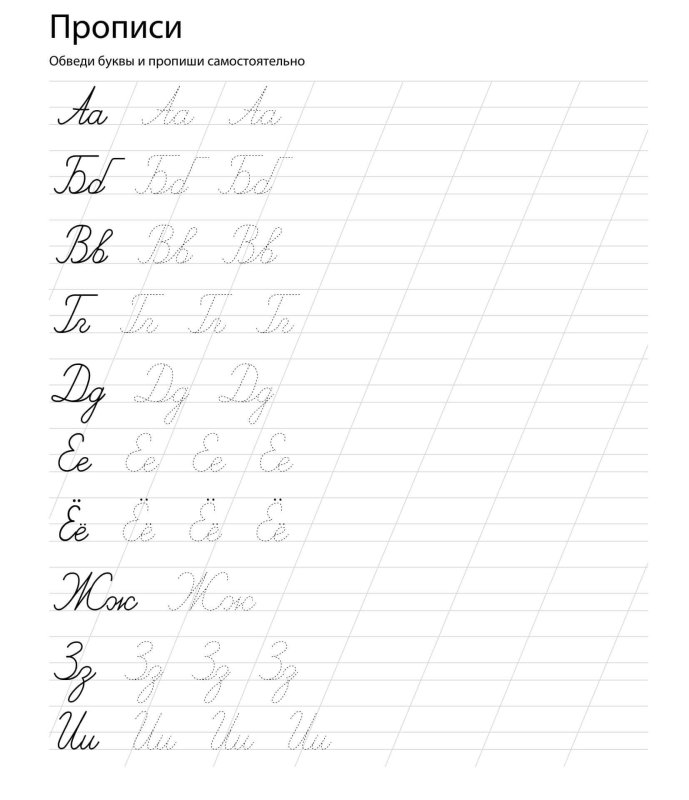 Прописи
Обведи буквы и пропиши самостоятельно
Аа Аа Аа
Бб Бб Бб
Вв Вв Вв
Гг Гг Гг Гг
Дд Дд Дд
Ее Ее Ее Ее
Ёё Ёё Ёё Ёё
Жж Жж
Зз Зз Зз Зз
Ии Ии Ии Ии